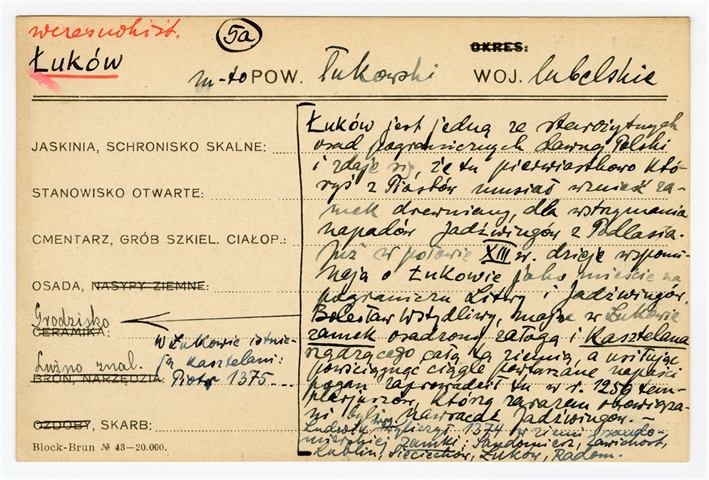 wczesnohist.
5a
OKRES:
Łuków
m-to POW. Łukowski WOJ. lubelskie
JASKINIA, SCHRONISKO SKALNE:
STANOWISKO OTWARTE:
CMENTARZ, GRÓB SZKIEL. CIAŁOP.:
OSADA, NASYPY ZIEMNE:
Grodzisko
CERAMIKA:
Luźno znal.
BROŃ, NARZĘDZIA:
OZDOBY, SKARB:
Block-Brun № 43-20.000.
w Łukowie istnie-
ją Kasztelani:
Piotr 1375
Łuków jest jedną ze starożytnych
osad pogranicznych dawnej Polski
i zdaje się, że tu pierwiastkowo któ-
ryś z Piastów musiał wznieść za-
mek drewniany, dla wstrzymania
napadów Jadźwingów z Podlasia.
Już w połowie XIII w. dzieje wspomi-
nają o Łukowie jako mieście na
pograniczu Litwy i Jadźwingów.
Bolesław Wstydliwy, mając w Łukowie
zamek osadzony załogą i Kasztelana
rządzącego całą tą ziemią, a usiłując
powściągnąć ciągle powtarzane napaści
pogan zaprowadził tu w r. 1256 tem-
plariuszów, którzy zarazem obowiąza-
ni byli nawracać Jadźwingów.
Ludwik Węgierski 1374 w ziemi Sando-
mierskiej zamki: Sandomierz, Zawichost,
Lublin, Sieciechów, Łuków, Radom.